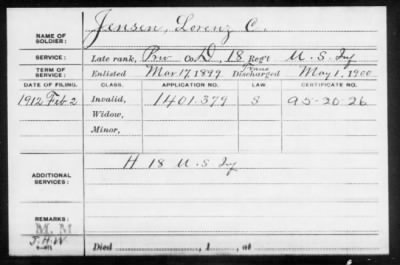 NAME OF SOLDIER: Jensen, Lorenz C.
SERVICE: Late rank, Prv Co. D, 18 Reg't U. S. Inf
TERM OF SERVICE: Enlisted Mar 17, 1899 Trans Discharged May 1, 1900
DATE OF FILING. CLASS. APPLICATION NO. LAW. CERTIFICATE NO.
1912 Feb 2 Invalid, 1401379 S 95-20-26
Widow,
Minor,
ADDITIONAL SERVICES: H 18 U. S. Inf
REMARKS:
M. M
J.H.W.
Died , 1 , at